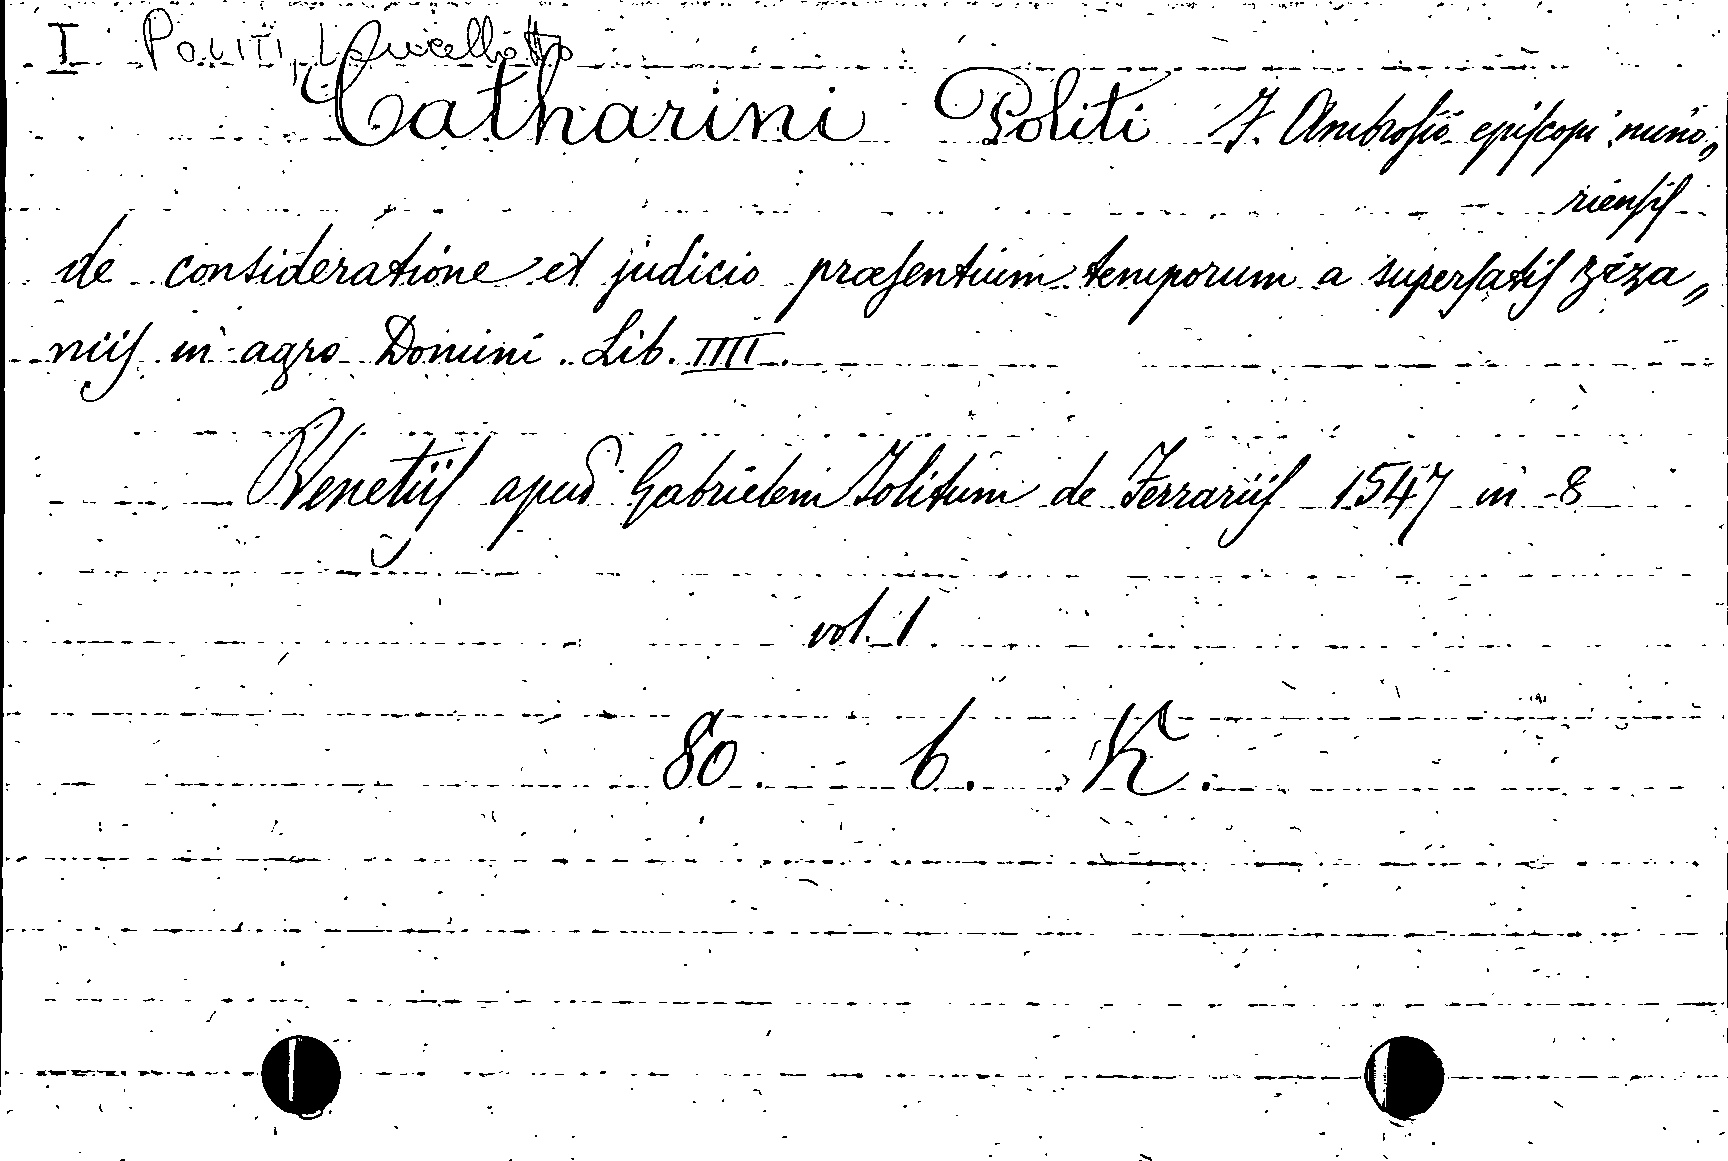 I Politi, Lancellotto
Catharini Politi F. Ambrosii episcopi mino„
riensis
de consideratione et judicio præsentium temporum a supersatis ziza„
niis in agro Domini. Lib. IIII.
Venetiis apud Gabrielem Jolitum de Ferrariis 1547 in 8
vol. 1
80. b. K.